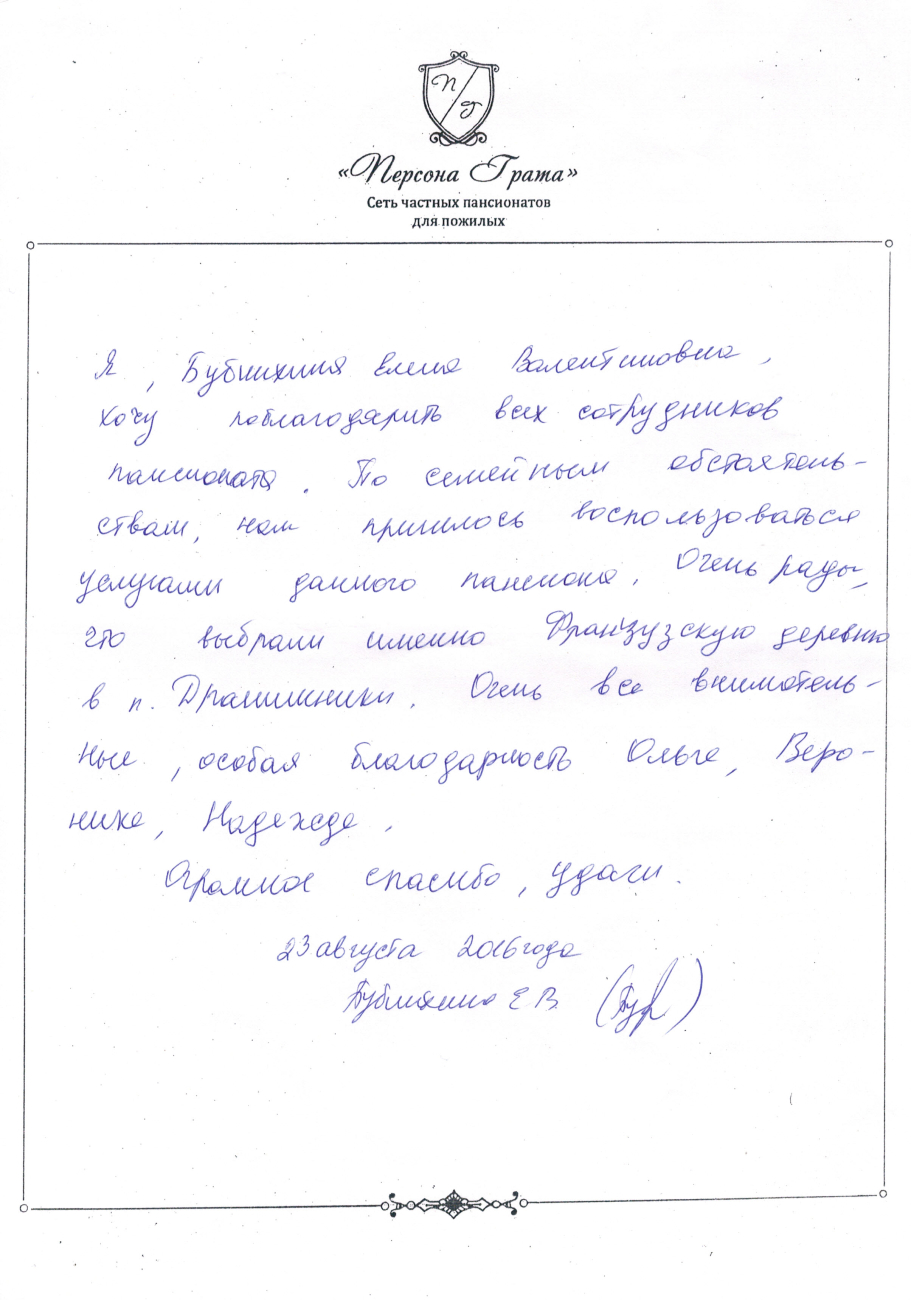 П
Г
«Персона Грата»
Сеть частных пансионатов
для пожилых
Я, Елена Валентиновна,
хочу поблагодарить всех сотрудников
пансионата. По семейным обстоятель-
ствам, нам пришлось воспользоваться
услугами данного пансиона. Очень рады,
что выбрали именно Французскую деревню
в п. Драчишники. Очень все вниматель-
ные, особая благодарность Ольге, Веро-
нике, Надежде.
Огромное спасибо, удачи.
23 августа 2016 года
Е В.